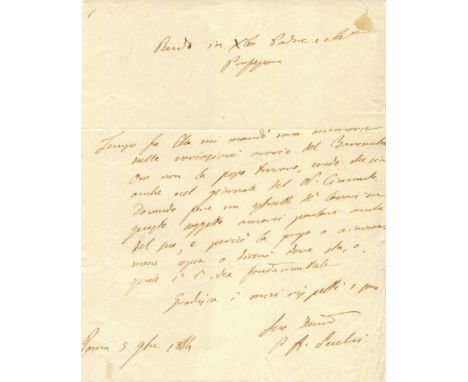 Revdo in Xto Padre e
Professore
Tempo fa Ella mi mandò una memoria
sulle variazioni orarie del Barometro
Ora non la posso trovare, credo che sia
anche nel giornale del N. Cimento
Dovendo fare un estratto de' lavori su
questo soggetto amerei parlare anche
del suo, e perciò la prego a
mene copia o dirmi dove sta, o
quale è l'idea fondamentale.
Gradisca i miei rispetti e sono
Suo Devmo
P A. Secchi
Roma 5 9bre 1864